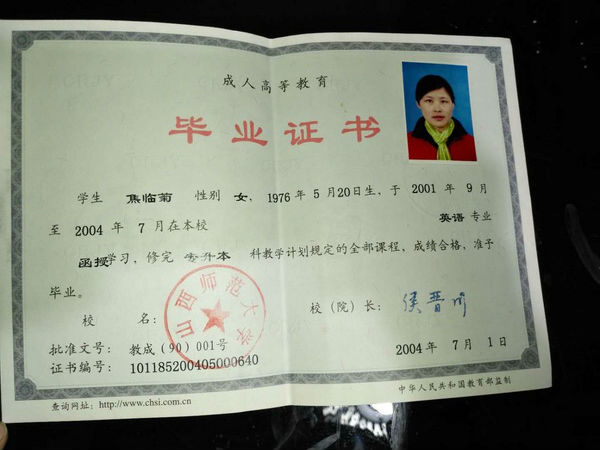 成人高等教育
毕业证书
学生 焦临菊 性别 女，1976年 5月20日生，于 2001年 9月
至 2004年 7月在本校 英语 专业
函授学习，修完 专升本 科教学计划规定的全部课程，成绩合格，准予
毕业。
校 名： 校（院）长： 侯晋川
山西师范大学
批准文号： 教成(90)001号
证书编号： 101185200405000640 2004年 7月 1日
查询网址：http://www.chsi.com.cn 中华人民共和国教育部监制